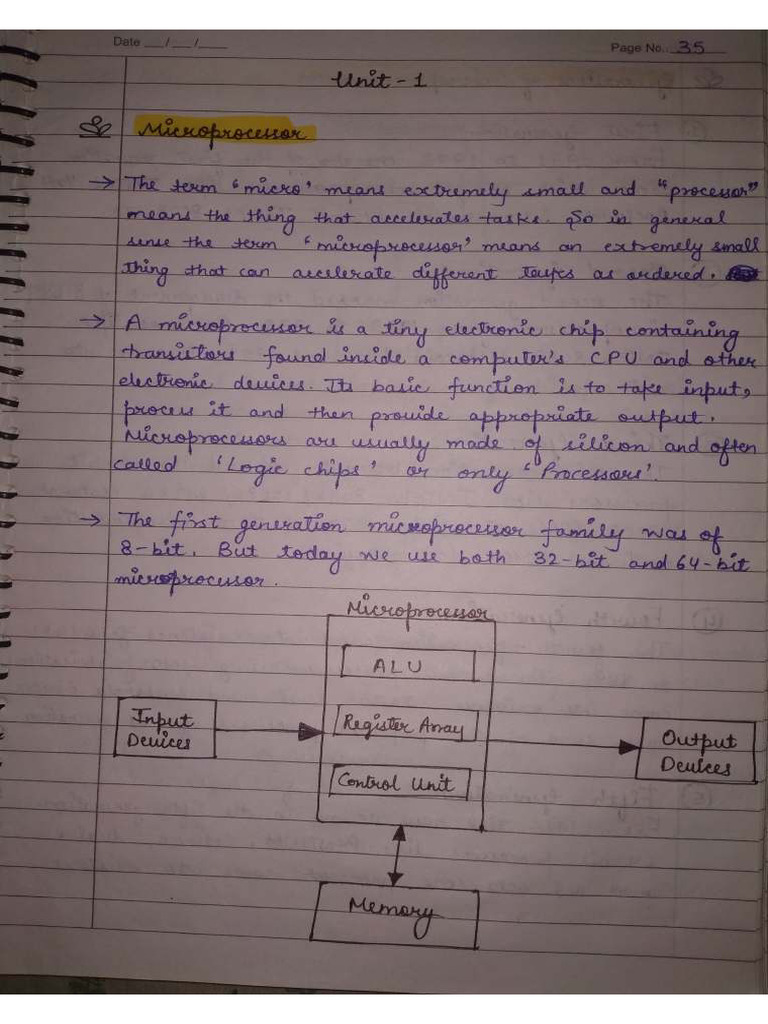 Date __/__/____
Page No.: 35
Unit - 1
Microprocessor
→ The term 'micro' means extremely small and "processor"
means the thing that accelerates tasks. So in general
sense the term 'microprocessor' means an extremely small
thing that can accelerate different tasks as ordered.
→ A microprocessor is a tiny electronic chip containing
transistors found inside a computer's CPU and other
electronic devices. Its basic function is to take input,
process it and then provide appropriate output.
Microprocessors are usually made of silicon and often
called 'Logic chips' or only 'Processors'.
→ The first generation microprocessor family was of
8-bit. But today we use both 32-bit and 64-bit
microprocessor.
Microprocessor
ALU
Input
Devices
Register Array
Output
Devices
Control Unit
Memory